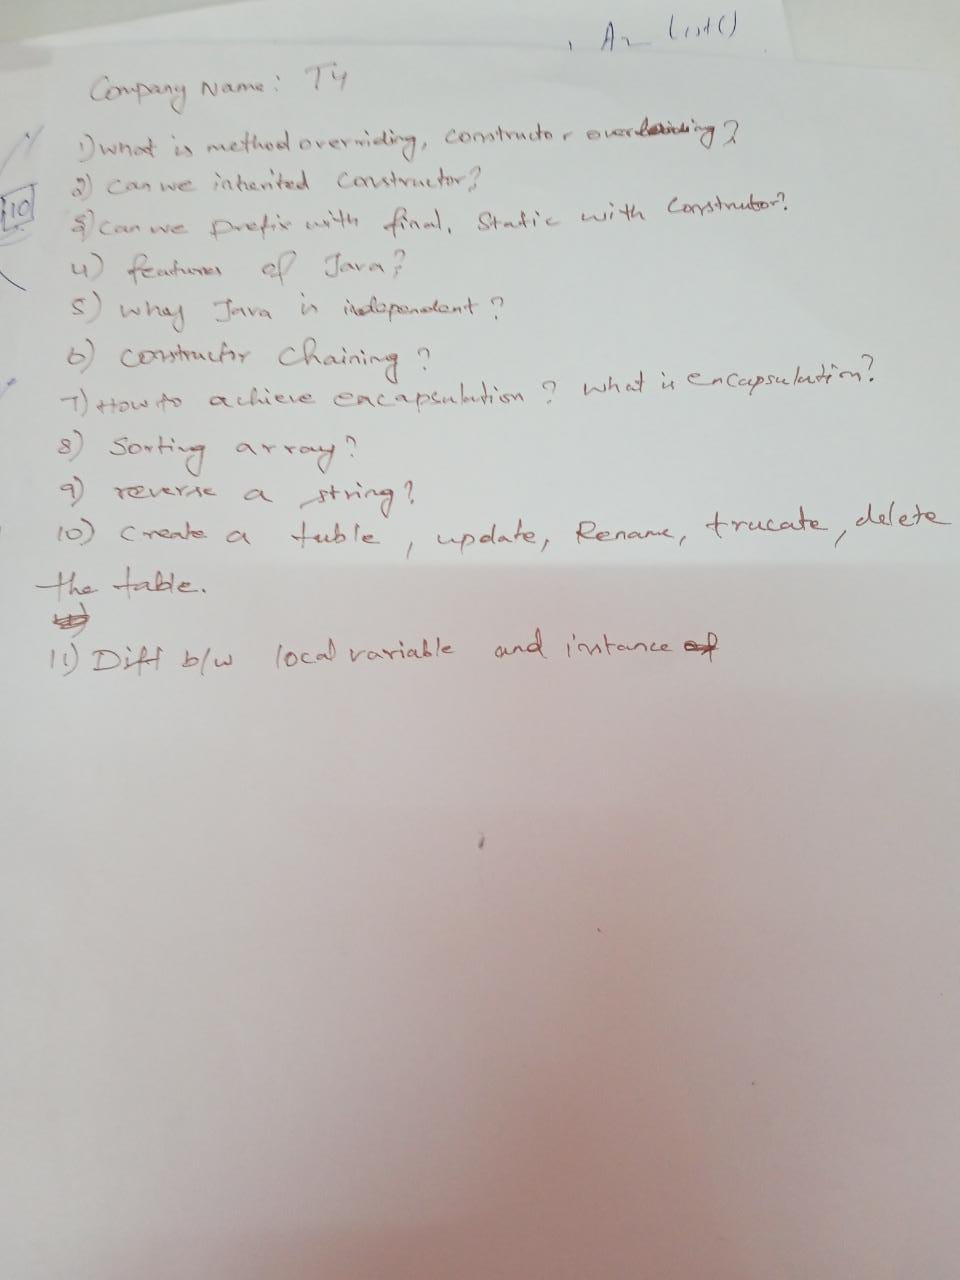 Ar list()
Company Name: TY
1) what is method overriding, constructor over ?
2) can we inherited constructor?
3) can we prefix with final, static with construtor?
10
4) features of Java?
5) whay Java is independent?
6) constructor chaining?
7) How to achieve encapsulation? what is encapsulation?
8) Sorting array?
9) reverse a string?
10) create a table, update, Rename, trucate, delete
the table.
11) Diff b/w local variable and instance